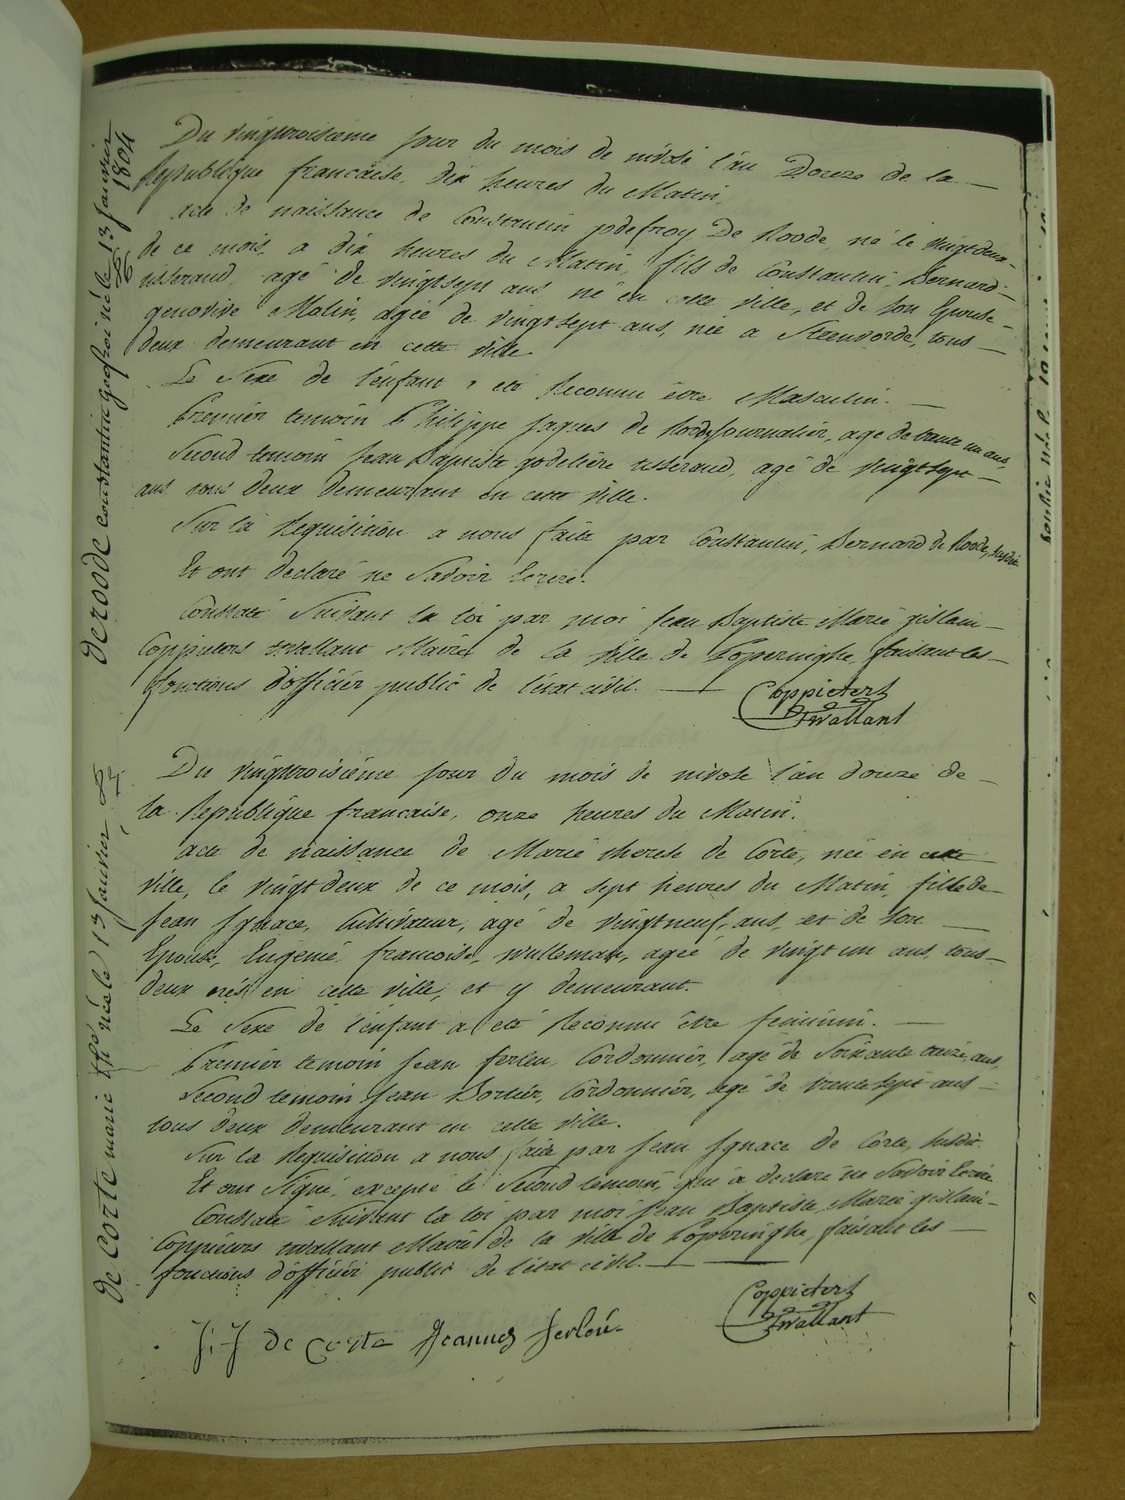 Du vingttroisième jour du mois de nivose l'an Douze de la
République française, dix heures du Matin.
acte de naissance de Constantin godefroy De Roode, né le vingt deux
de ce mois, a dix heures du Matin, fils de Constantin, Bernard
tisserand, agé de vingtsept ans, né en cette ville, et de son Epouse
genovive Malin, agée de vingt sept ans, née a Steenvorde, tous
deux demeurant en cette ville
Le Sexe de l'enfant a été Reconnu être Masculin.
Premier temoin Philippe Jaques de Roode Journalier, agé de trente un ans,
Second temoin Jean Baptiste godelière tisserand, agé de vingtsept
ans tous deux demeurant en cette ville.
Sur la Requisition a nous faite par Constantin, Bernard de Roode, susdit
Et ont declaré ne Savoir Ecrire.
Constaté Suivant la loi par moi Jean Baptiste Marie gislain
Coppieters twallant Maire de la ville de Poperinghe, faisant les
fonctions d'officier public de l'état civil.
Coppieters
Twallant
deroode constantin godfroi né le 13 Janvier
1804
Du vingttroisième jour du mois de nivose l'an douze de
la République française, onze heures du Matin.
acte de naissance de Marie therese de Corte, née en cette
ville, le vingt deux de ce mois, a sept heures du Matin, fille de
Jean Ignace, Cultivateur, agé de vingt neuf, ans, et de son
Epouse, Eugenie francoise, wulleman, agée de vingt un ans, tous
deux nés en cette ville, et y demeurant.
Le Sexe de l'enfant a été Reconnu être feminin.
Premier temoin Jean ferleu, Cordonnier, agé de Soixante treize, ans,
Second temoin Jean Bortier, Cordonnier, agé de trente sept ans
tous deux demeurant en cette ville.
Sur la Requisition a nous faite par Jean Ignace de Corte, susdit
Et ont Signé, excepté le Second temoin, qui a declaré ne Savoir Ecrire
Constaté Suivant la loi par moi Jean Baptiste, Marie gislain
Coppieters twallant Maire de la ville de Poperinghe, faisant les
fonctions d'officier public de l'état civil.
Coppieters
Twallant
J: J de Corte Joannes ferleu
de Corte marie née le 13 Janvier